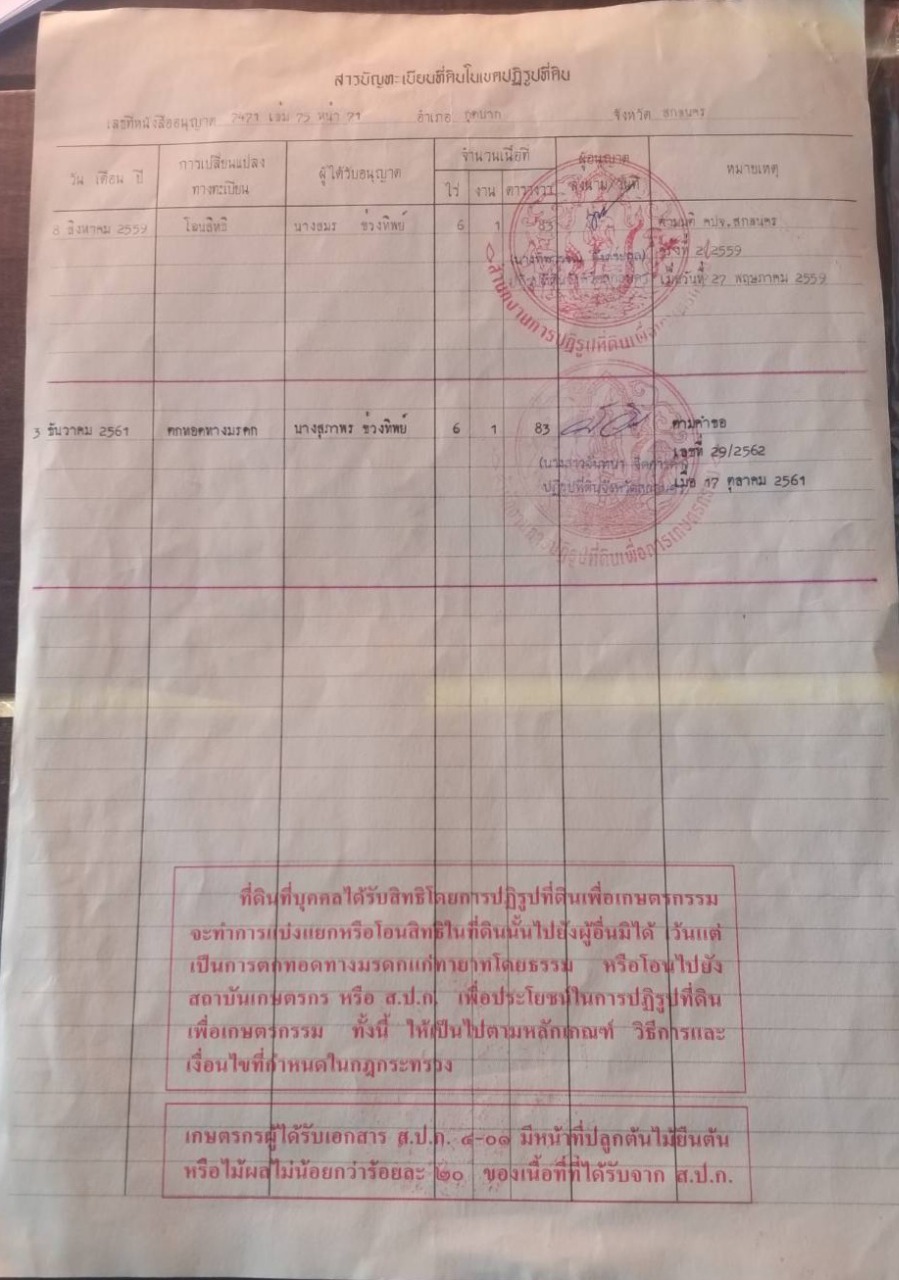 สารบัญทะเบียนที่ดินในเขตปฏิรูปที่ดิน
เลขที่หนังสืออนุญาต 7471 เล่ม 75 หน้า 71 อำเภอ กุดบาก จังหวัด สกลนคร
วัน เดือน ปี การเปลี่ยนแปลงทางทะเบียน ผู้ได้รับอนุญาต จำนวนเนื้อที่ ไร่ งาน ตารางวา ผู้อนุญาต ลงนาม/วันที่ หมายเหตุ
8 สิงหาคม 2559 โอนสิทธิ นางสมร ช่วงทิพย์ 6 1 83 ตามมติ คปจ.สกลนคร
ครั้งที่ 2/2559
เมื่อวันที่ 27 พฤษภาคม 2559
สำนักงานการปฏิรูปที่ดินเพื่อ
3 ธันวาคม 2561 ตกทอดทางมรดก นางสุภาพร ช่วงทิพย์ 6 1 83 ตามคำขอ
เลขที่ 29/2562
ปฏิรูปที่ดินจังหวัดสกลนคร เมื่อ 17 ตุลาคม 2561
การปฏิรูปที่ดินเพื่อการเกษตรกรรม
ที่ดินที่บุคคลได้รับสิทธิโดยการปฏิรูปที่ดินเพื่อเกษตรกรรม
จะทำการแบ่งแยกหรือโอนสิทธิในที่ดินนั้นไปยังผู้อื่นมิได้ เว้นแต่
เป็นการตกทอดทางมรดกแก่ทายาทโดยธรรม หรือโอนไปยัง
สถาบันเกษตรกร หรือ ส.ป.ก. เพื่อประโยชน์ในการปฏิรูปที่ดิน
เพื่อเกษตรกรรม ทั้งนี้ ให้เป็นไปตามหลักเกณฑ์ วิธีการและ
เงื่อนไขที่กำหนดในกฎกระทรวง
เกษตรกรผู้ได้รับเอกสาร ส.ป.ก. ๔-๐๑ มีหน้าที่ปลูกต้นไม้ยืนต้น
หรือไม้ผลไม่น้อยกว่าร้อยละ ๒๐ ของเนื้อที่ที่ได้รับจาก ส.ป.ก.